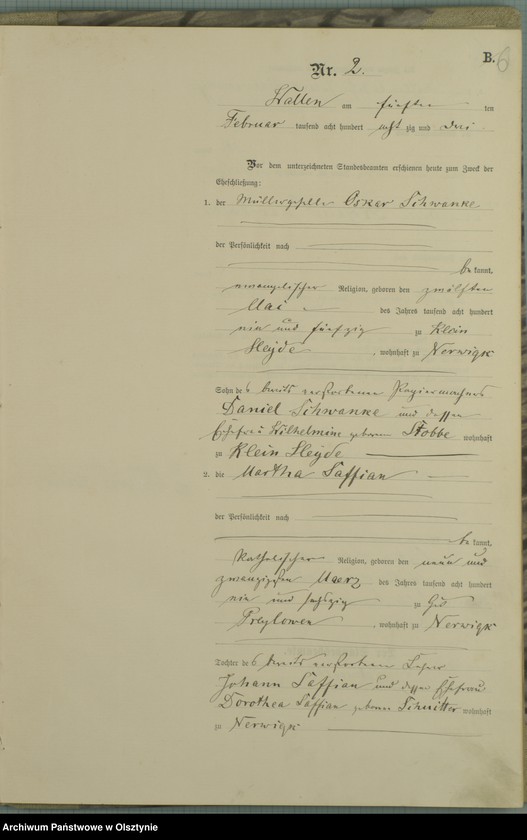 B. 6
Nr. 2.
Wallen am fünften ten
Februar tausend acht hundert achtzig und drei
Vor dem unterzeichneten Standesbeamten erschienen heute zum Zweck der
Eheschließung:
1. der Müllergeselle Oskar Schwanke
der Persönlichkeit nach
be kannt,
evangelischer Religion, geboren den zwölften
Mai des Jahres tausend acht hundert
ein und fünfzig zu Klein
Heyde, wohnhaft zu Nerwigk
Sohn des bereits verstorbenen Papiermachers
Daniel Schwanke und dessen
Ehefrau Wilhelmine geborene Stobbe wohnhaft
zu Klein Heyde
2. die Martha Saffian
der Persönlichkeit nach
be kannt,
katholischer Religion, geboren den neun und
zwanzigsten Maerz des Jahres tausend acht hundert
ein und sechszig zu Gut
Preylowen, wohnhaft zu Nerwigk
Tochter des bereits verstorbenen
Johann Saffian und dessen Ehefrau
Dorothea Saffian geborene Schnitter wohnhaft
zu Nerwigk
Archiwum Państwowe w Olsztynie